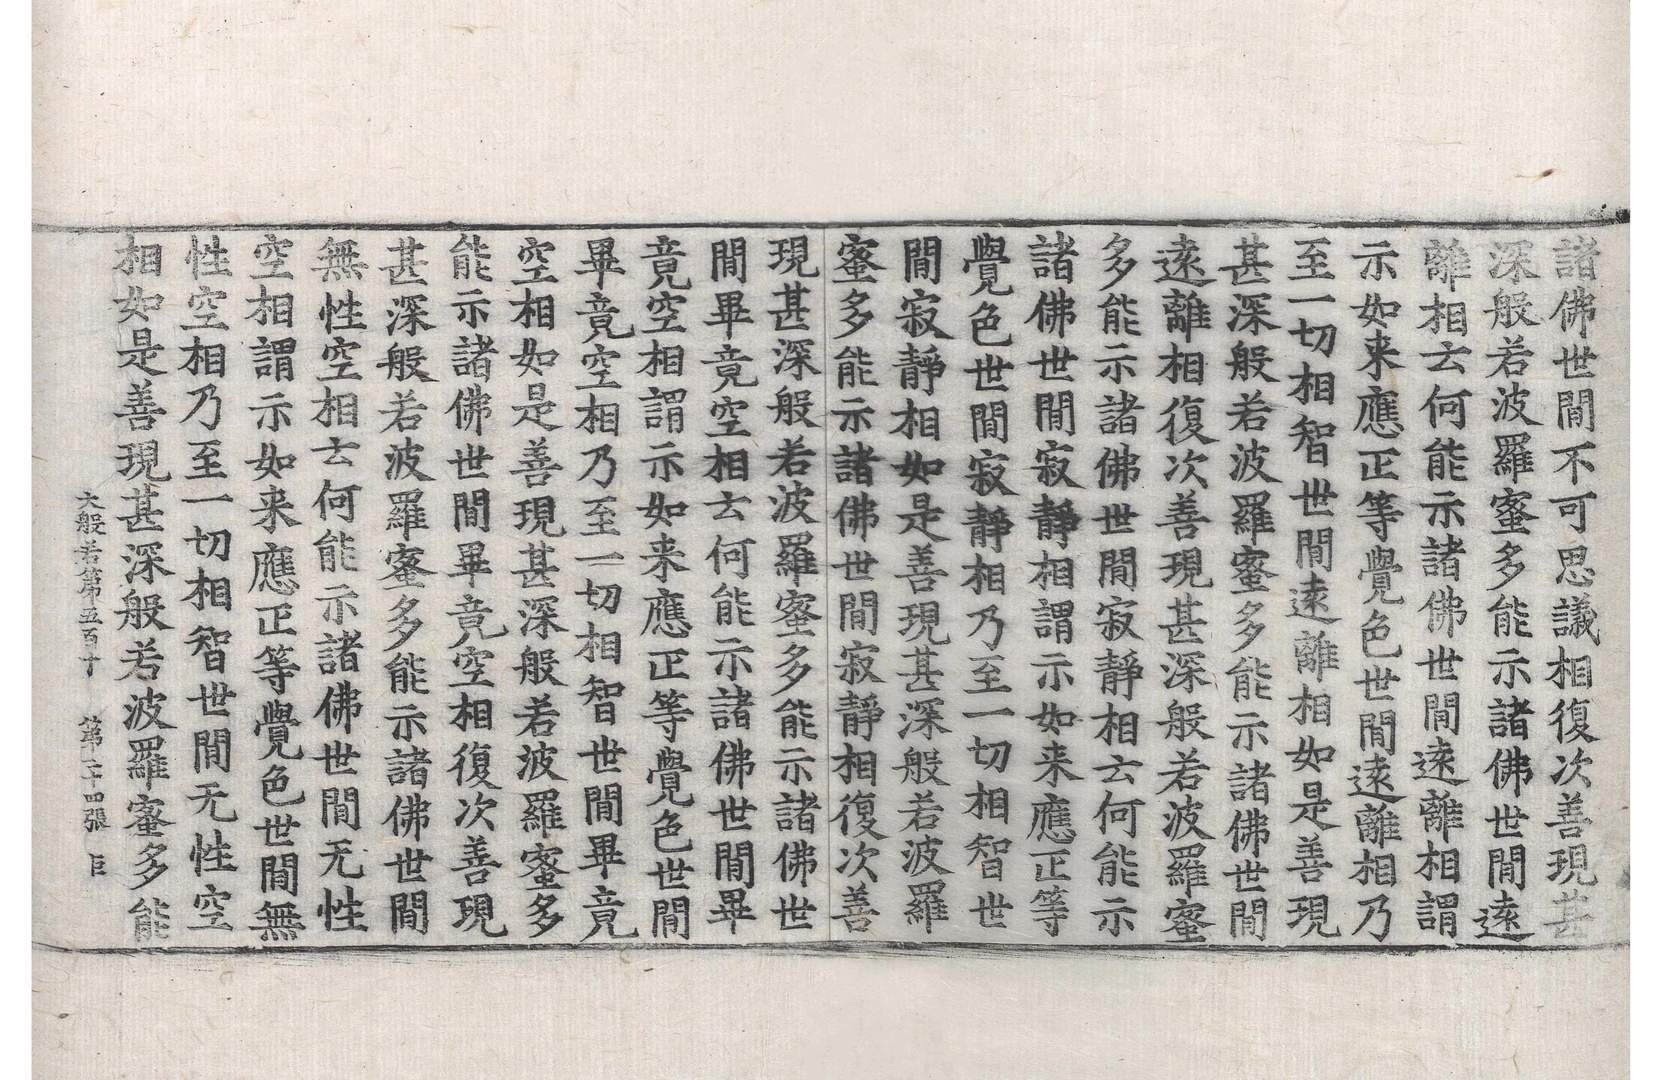 諸佛世間不可思議相復次善現甚
深般若波羅蜜多能示諸佛世間遠
離相云何能示諸佛世間遠離相謂
示如来應正等覺色世間遠離相乃
至一切相智世間遠離相如是善現
甚深般若波羅蜜多能示諸佛世間
遠離相復次善現甚深般若波羅蜜
多能示諸佛世間寂靜相云何能示
諸佛世間寂靜相謂示如来應正等
覺色世間寂靜相乃至一切相智世
間寂靜相如是善現甚深般若波羅
蜜多能示諸佛世間寂靜相復次善
現甚深般若波羅蜜多能示諸佛世
間畢竟空相云何能示諸佛世間畢
竟空相謂示如来應正等覺色世間
畢竟空相乃至一切相智世間畢竟
空相如是善現甚深般若波羅蜜多
能示諸佛世間畢竟空相復次善現
甚深般若波羅蜜多能示諸佛世間
無性空相云何能示諸佛世間无性
空相謂示如来應正等覺色世間無
性空相乃至一切相智世間无性空
相如是善現甚深般若波羅蜜多能
大般若第五百十 第二十四張 巨